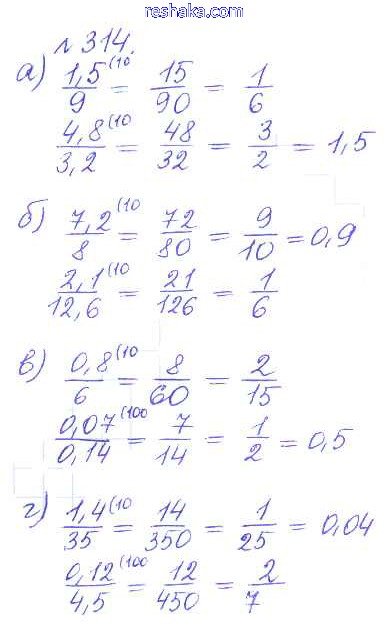 reshaka.com
№ 314.
а) 1,5(10/9 = 15/90 = 1/6
4,8(10/3,2 = 48/32 = 3/2 = 1,5
б) 7,2(10/8 = 72/80 = 9/10 = 0,9
2,1(10/12,6 = 21/126 = 1/6
в) 0,8(10/6 = 8/60 = 2/15
0,07(100/0,14 = 7/14 = 1/2 = 0,5
г) 1,4(10/35 = 14/350 = 1/25 = 0,04
0,12(100/4,5 = 12/450 = 2/7
reshaka.com